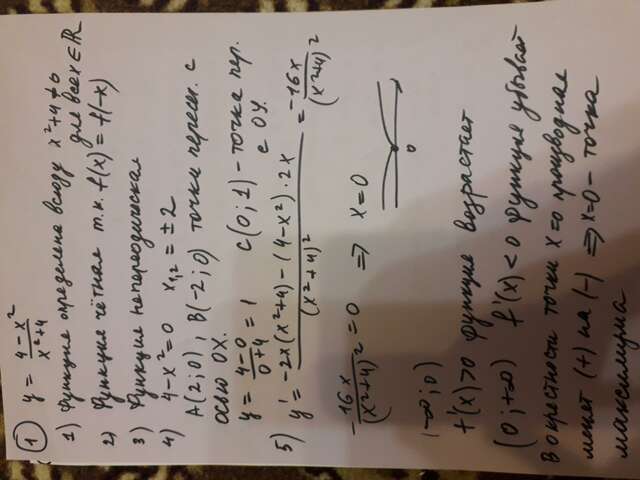 ① y = (4-x²)/(x²+4)
1) Функция определена всюду x²+4≠0
для всех x∈ℝ
2) Функция чётная т.к. f(x) = f(-x)
3) Функция непереодическая
4) 4-x²=0 x₁,₂ = ±2
A(2;0), B(-2;0) точки пересеч. с
осью OX.
y = (4-0)/(0+4) = 1 C(0;1) - точка пер.
с OY.
5) y' = (-2x(x²+4) - (4-x²)·2x)/(x²+4)² = (-16x)/(x²+4)²
-16x/(x²+4)² = 0 ⇒ x=0
0
(-∞;0)
f'(x)>0 функция возрастает
(0;+∞) f'(x)<0 функция убывает
в окрестности точки x=0 производная
меняет (+) на (-) ⇒ x=0 - точка
максимума